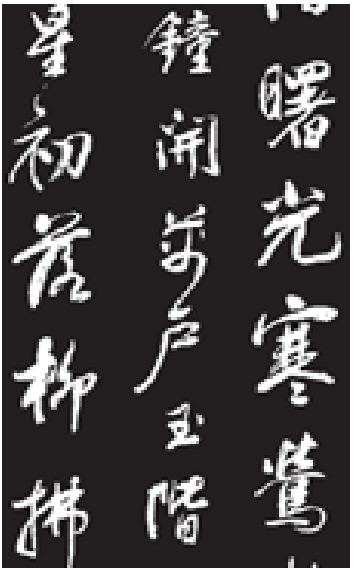 曙光寒鶯
鐘開萬戶玉階
星初落柳拂